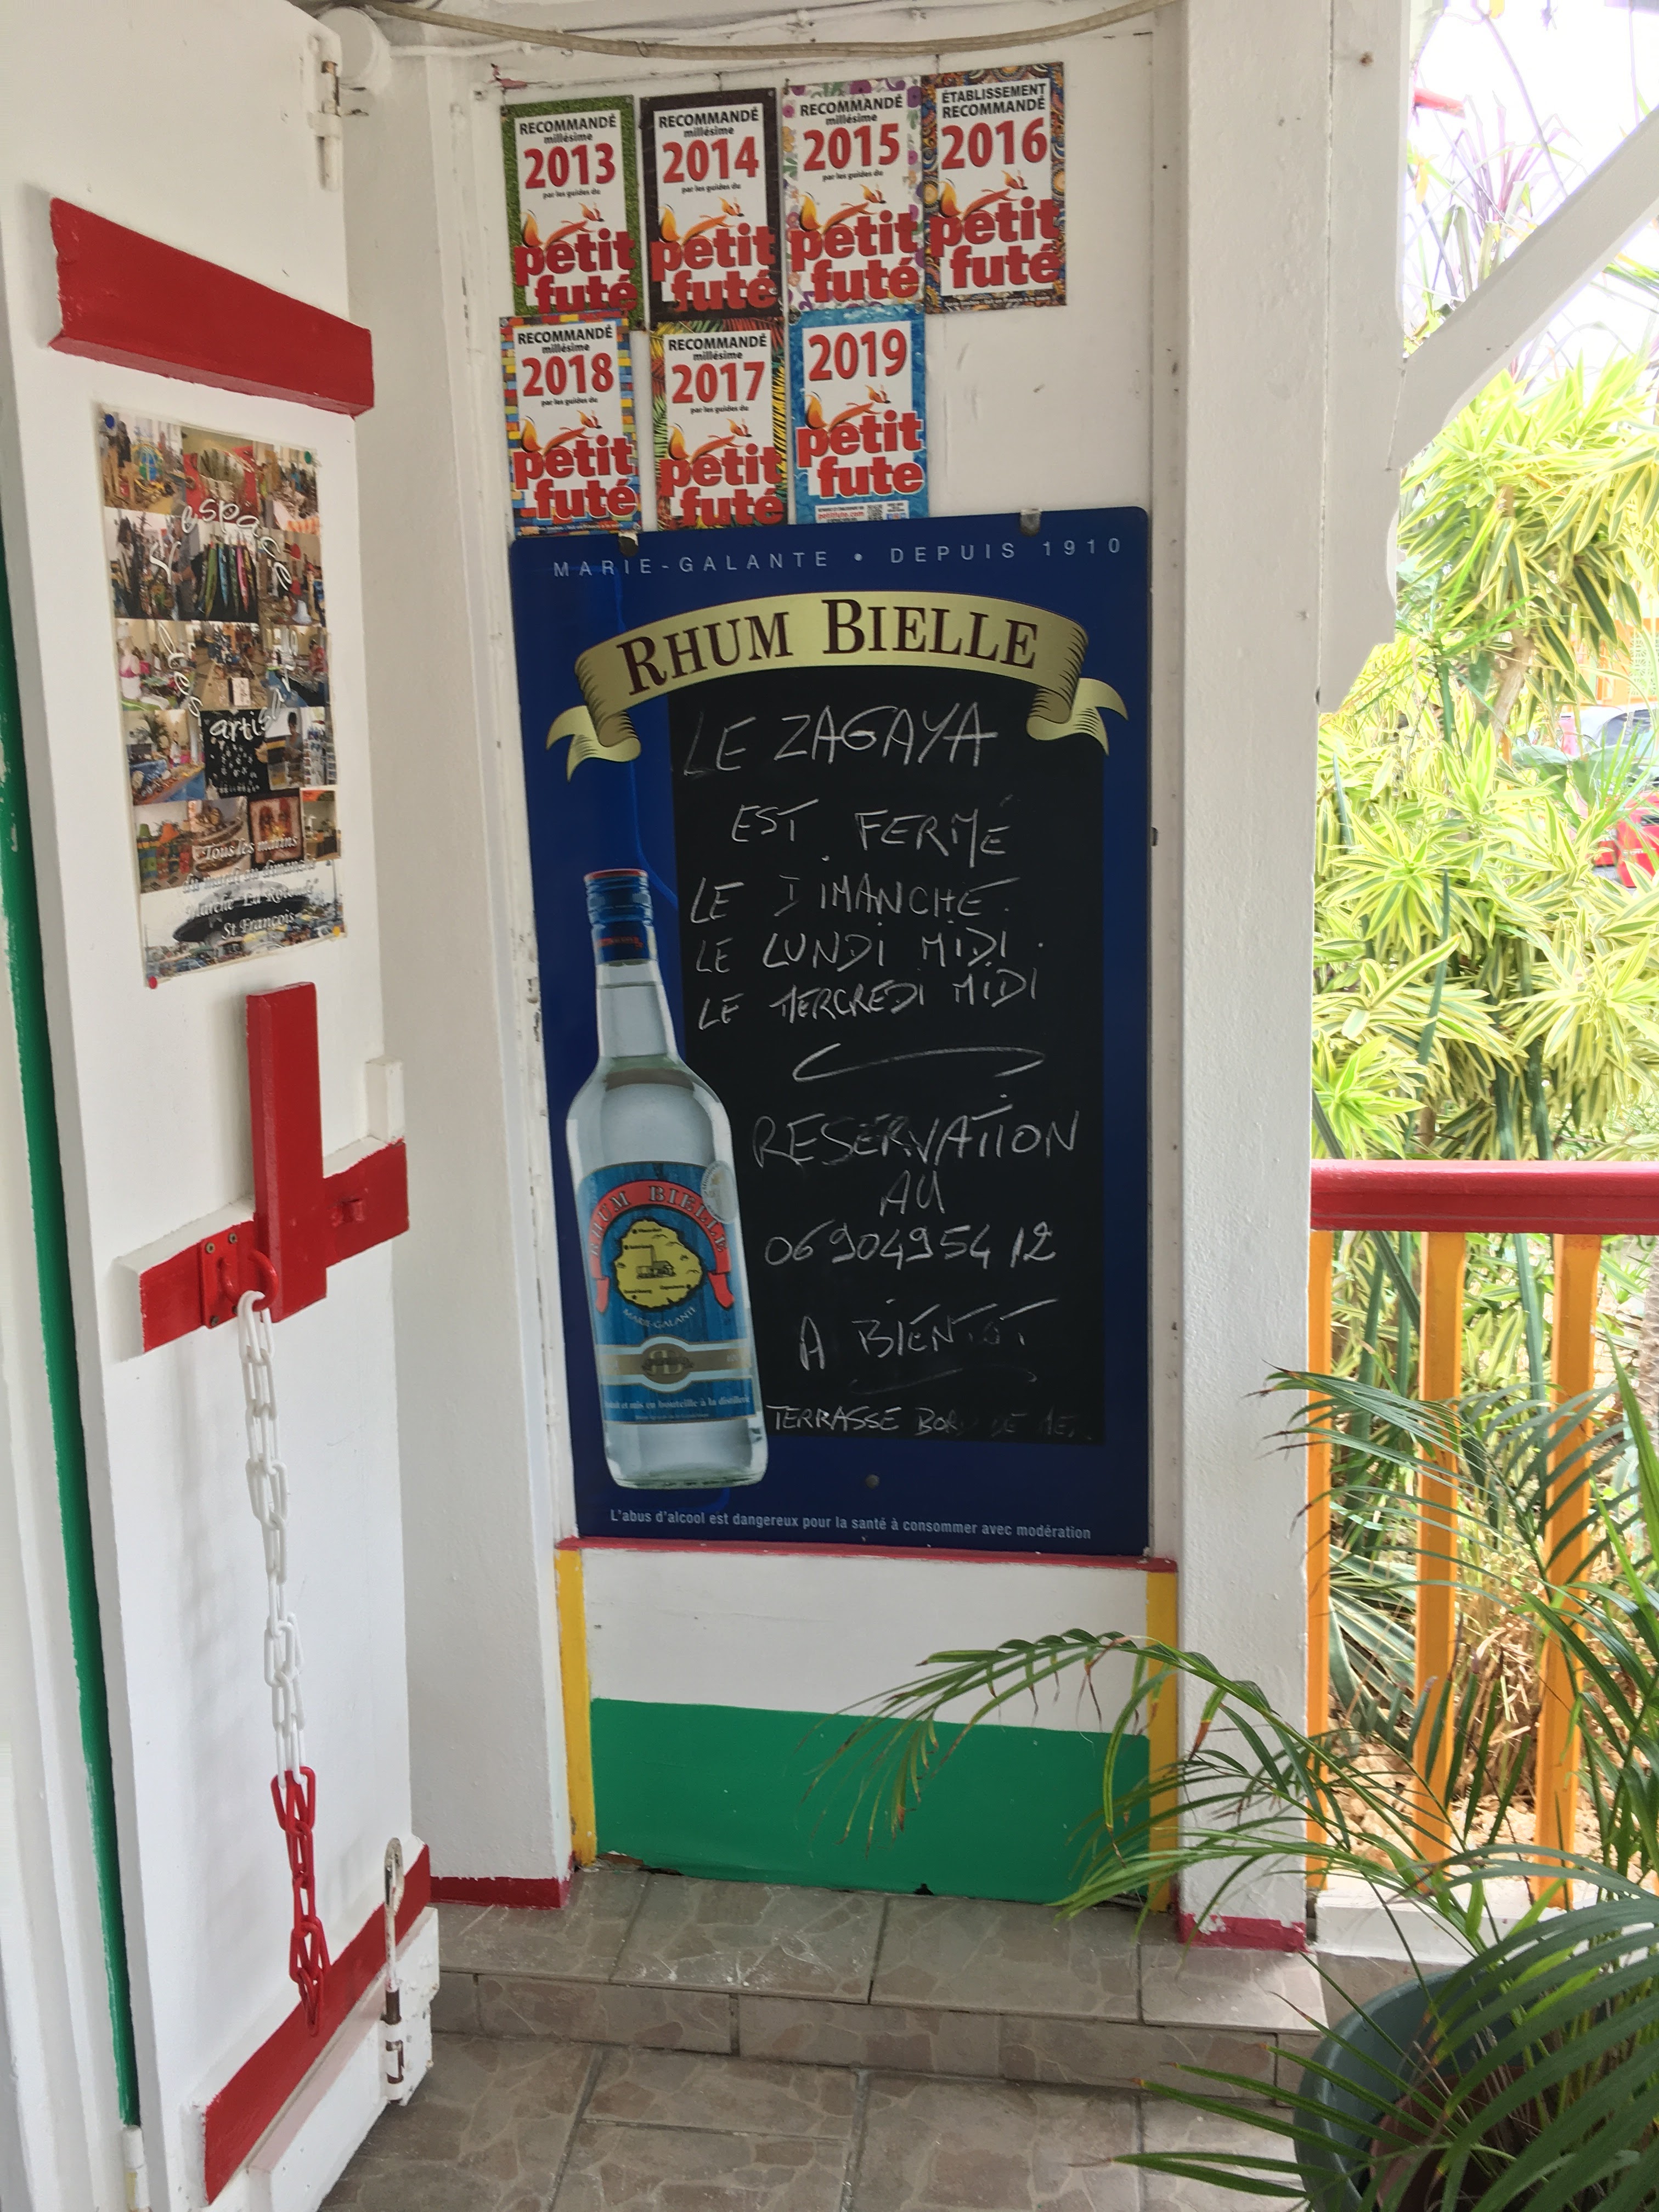 RECOMMANDÉ
millésime
2013
par les guides du
petit
futé
RECOMMANDÉ
millésime
2014
par les guides du
petit
futé
RECOMMANDÉ
millésime
2015
par les guides du
petit
futé
ÉTABLISSEMENT
RECOMMANDÉ
2016
petit
futé
RECOMMANDÉ
millésime
2018
par les guides du
petit
futé
RECOMMANDÉ
millésime
2017
par les guides du
petit
futé
2019
petit
fute
petitfute.com
MARIE-GALANTE • DEPUIS 1910
RHUM BIELLE
LE ZAGAYA
EST FERMÉ
LE DIMANCHE.
LE LUNDI MIDI.
LE MERCREDI MIDI
RESERVATION
AU
0690495412
A BIENTOT
TERRASSE BORD DE MER
RHUM BIELLE
MARIE-GALANTE
et mis en bouteille à la distillerie
L'abus d'alcool est dangereux pour la santé à consommer avec modération
artis
Tous les matins
du mardi au dimanche
Marché "La Rotonde"
St François